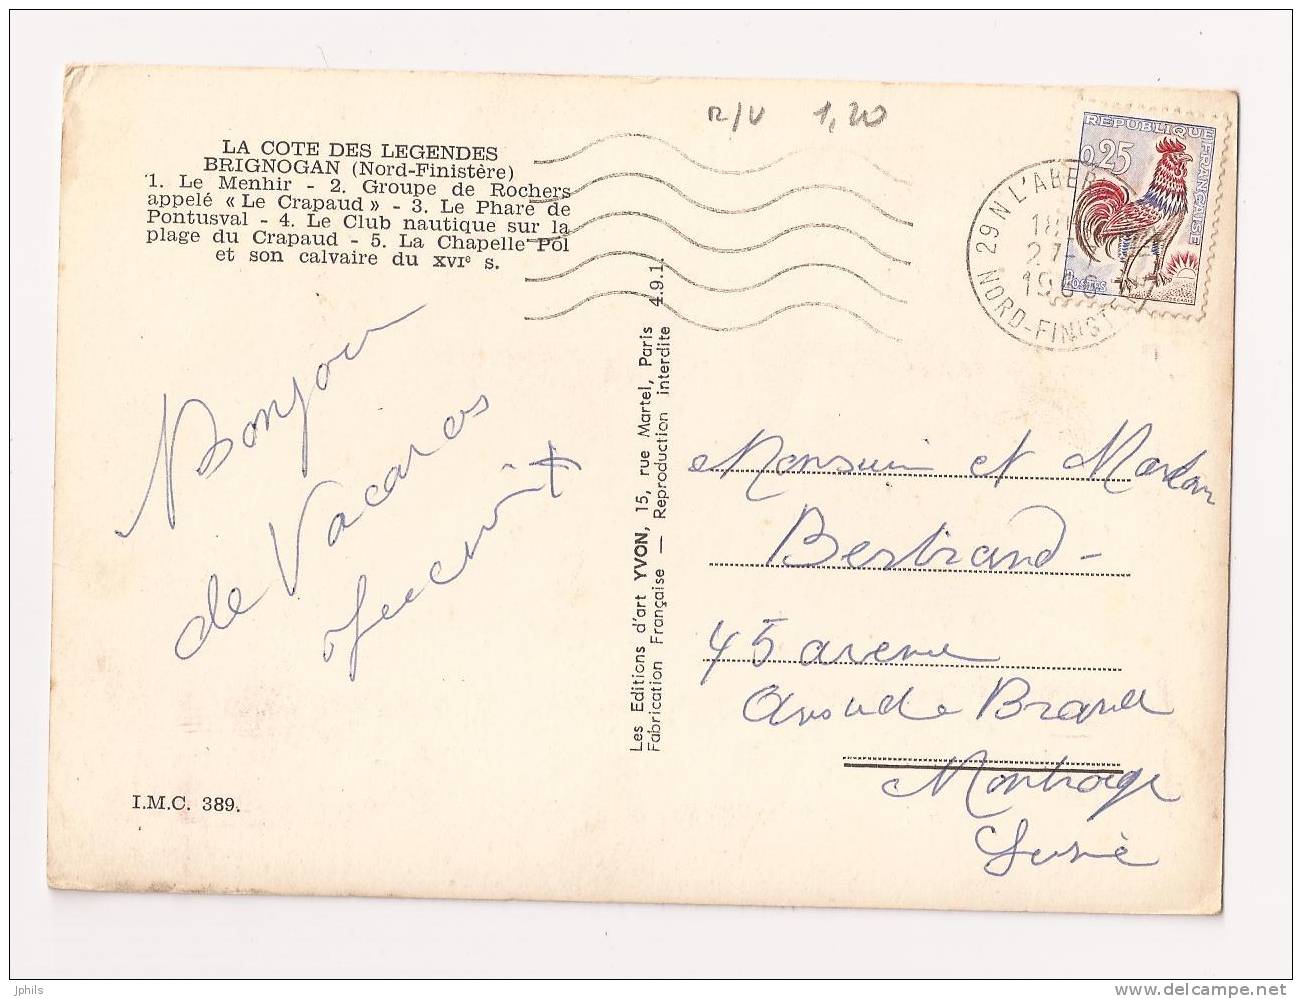 R/V 1,20
LA COTE DES LEGENDES
BRIGNOGAN (Nord-Finistère)
1. Le Menhir - 2. Groupe de Rochers
appelé « Le Crapaud » - 3. Le Phare de
Pontusval - 4. Le Club nautique sur la
plage du Crapaud - 5. La Chapelle Pol
et son calvaire du XVIe s.
REPUBLIQUE FRANÇAISE
0,25
POSTES
29 N L'ABER
18
27
19
NORD-FINIST
Bonjour
de Vacances
Les Editions d'art YVON, 15, rue Martel, Paris 4.9.1.
Fabrication Française — Reproduction interdite
Monsieur et Madame
Bertrand-
45 avenue
Aristide Briand
Montrouge
Seine
I.M.C. 389.
jphils
delcampe.net